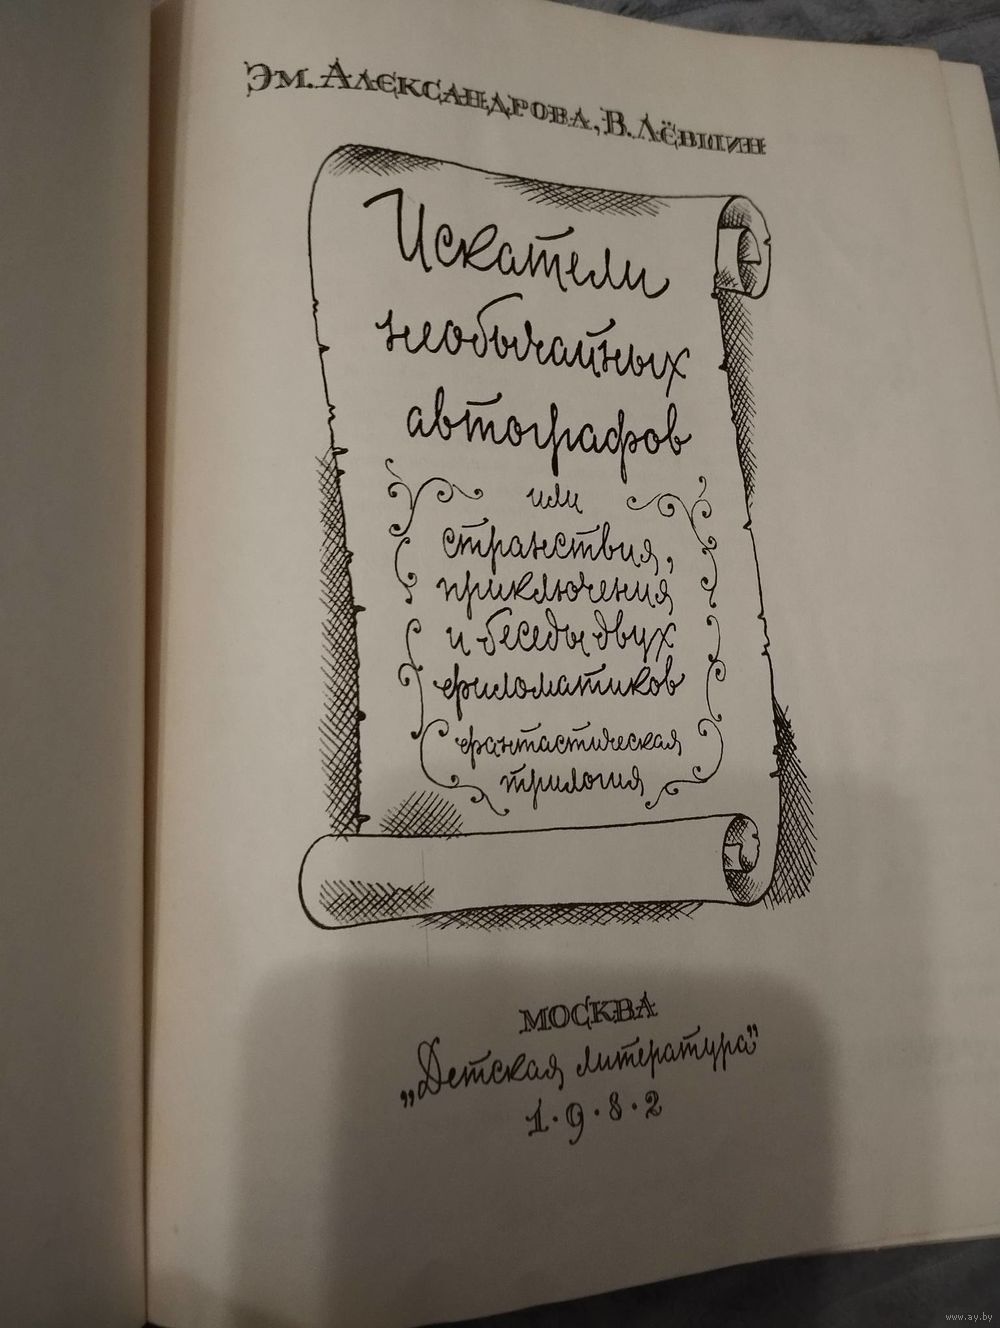 Эм. Александрова, В. Лёвшин
Искатели
необычайных
автографов
или
странствия,
приключения
и беседы двух
филоматиков
фантастическая
трилогия
МОСКВА
„Детская литература”
1·9·8·2
www.ay.by